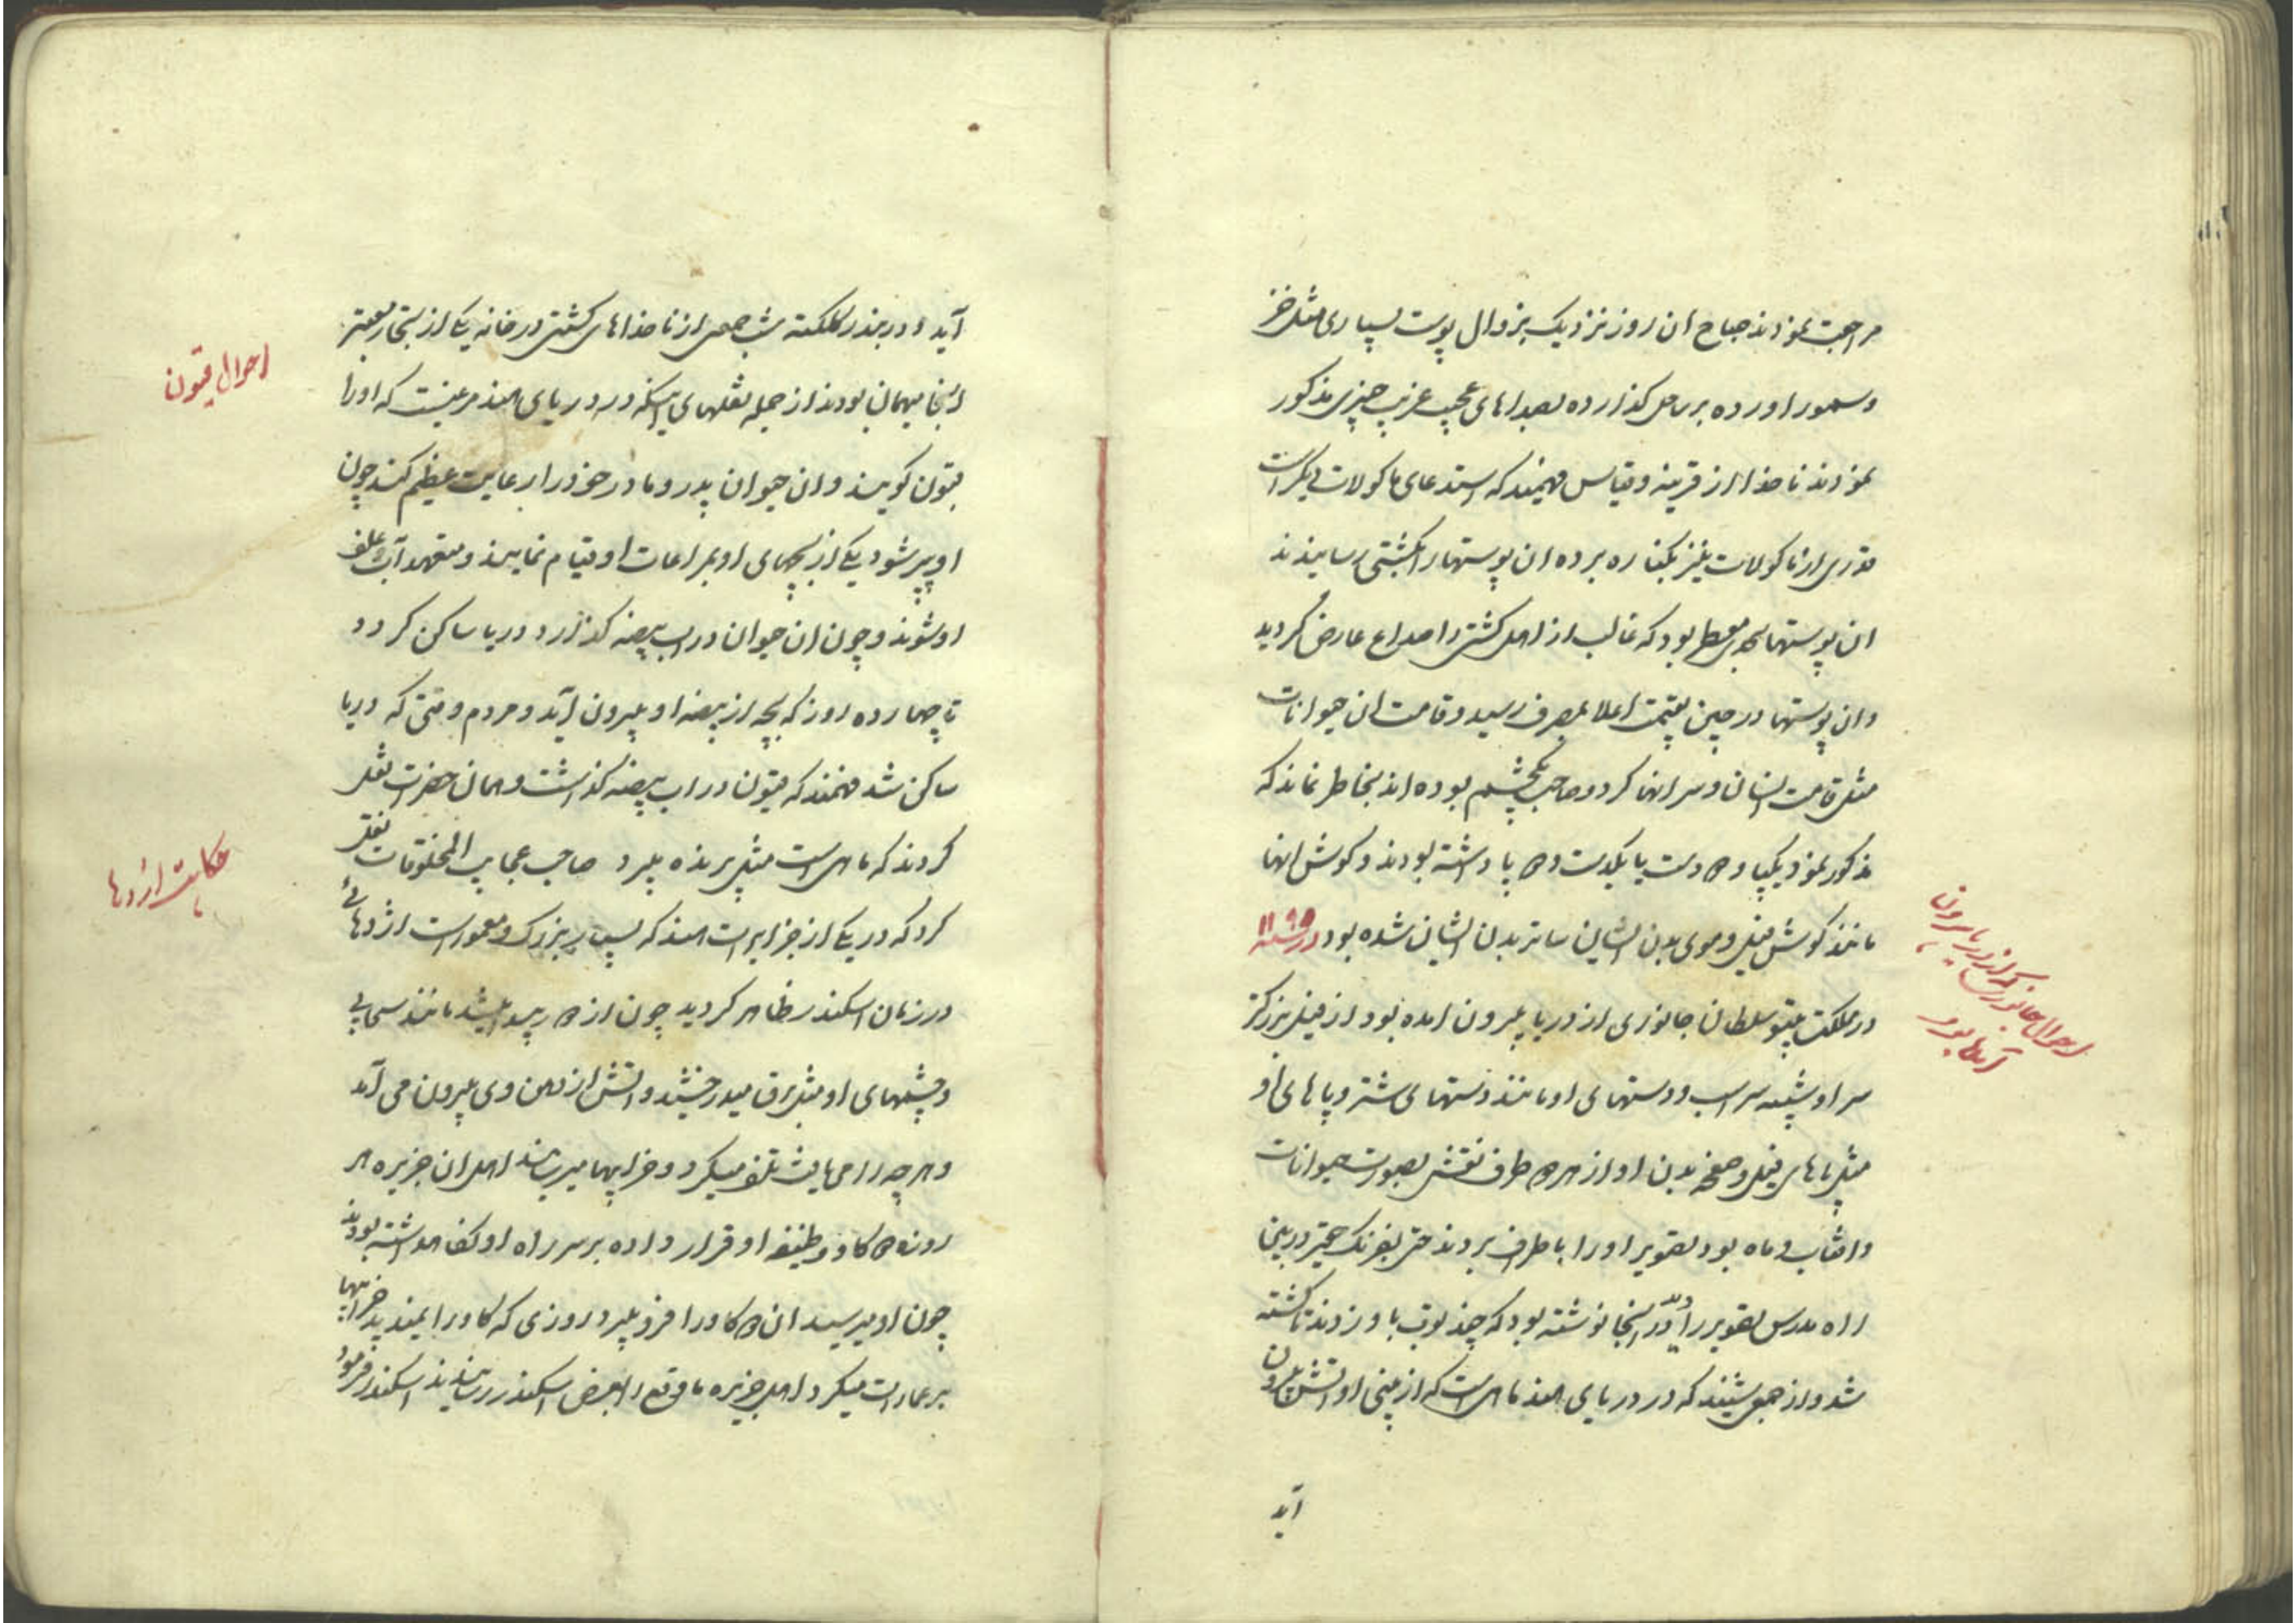 مراجعت نمودند صباح ان روز نزدیک بزوال پوست بسیاری مثل خز
و سمور اورده بر ساحل کذارده بصداهای عجیب غریب چیزی مذکور
نمودند ناخدا از قرینه و قیاس فهمیند که استدعای ماکولات دیکر است
قدری از ماکولات نیز بکناره برده ان پوستها را بکشتی رسانیدند
ان پوستها بحدی معطر بود که غالب از اهل کشتی را صداع عارض کردید
وان پوستها در چین بقیمت اعلا بمصرف رسید و قامت ان حیوانات
مثل قامت انسان و سر انها کرد و صاحب یکچشم بوده اند بخاطر نماند که
مذکور نمود یکپا و ۲ دست یا یکدست و ۲ پا داشته بودند و کوش انها
مانند کوش فیل و موی بدن ایشان ساتر بدن ایشان شده بود در سنه ۱۱۹۵
در مملکت تیپو سلطان جانوری از دریا بیرون امده بود از فیل بزرکتر
سر او شبیه سر اسب و دستهای او مانند دستهای شتر و پاهای او
مثل پاهای فیل و صفحه بدن او از هر ۲ طرف نقش بصورت حیوانات
و افتاب و ماه بود تصویر او را باطراف بردند حتی بفرنک حقیر در بین
راه مدرس تصویر را دید در انجا نوشته بود که چند توپ باو زدند تا کشته
شد و از جمعی شنیند که در دریای هند ماهی است که از بینی او اتش بیرون
آید
احوال جانوری که از دریا بیرون
آمده بود
آید و در بندر کلکته شب جمعی از ناخداهای کشتی در خانه یکی از تجار معتبر
انجا میهمان بودند از جمله نقلهای اینکه در دریای هند مرغیست که او را
قیون کویند و ان حیوان پدر و مادر خود را رعایت عظیم کند چون
او پیر شود یکی از بچهای او بمراعات او قیام نمایند و متعهد آب و علف
او شوند و چون ان حیوان در اب بیضه کذارد دریا ساکن کردد
تا چهارده روز که بچه از بیضه او بیرون آید و مردم وقتی که دریا
ساکن شد فهمند که قیون در اب بیضه کذاشت و همان حضرات نقل
کردند که ماهی است مثل پرنده پرد صاحب عجایب المخلوقات نقل
کرد که در یکی از جزایر است هند که بسیار بزرک و معمور است اژدهائی
در زمان اسکندر ظاهر کردید چون از ۲ ر پیدا میشد مانند سحابی
و چشمهای او مثل برق میدرخشید و اتش از دهن وی بیرون می آمد
و هر چه را می یافت تلف میکرد و خرابیها میرساند اهل ان جزیره هر
روزه ۲ کاو وظیفه او قرار داده بر سر راه او نکاه داشته بودند
چون او میرسید ان ۲ کاو را فرو میبرد روزی که کاو را نمیدید خرابیها
بر عمارات میکرد اهل جزیره ماوقع را بعرض اسکندر رسانیدند اسکندر فرمود
احوال قیون
حکایت اژدها